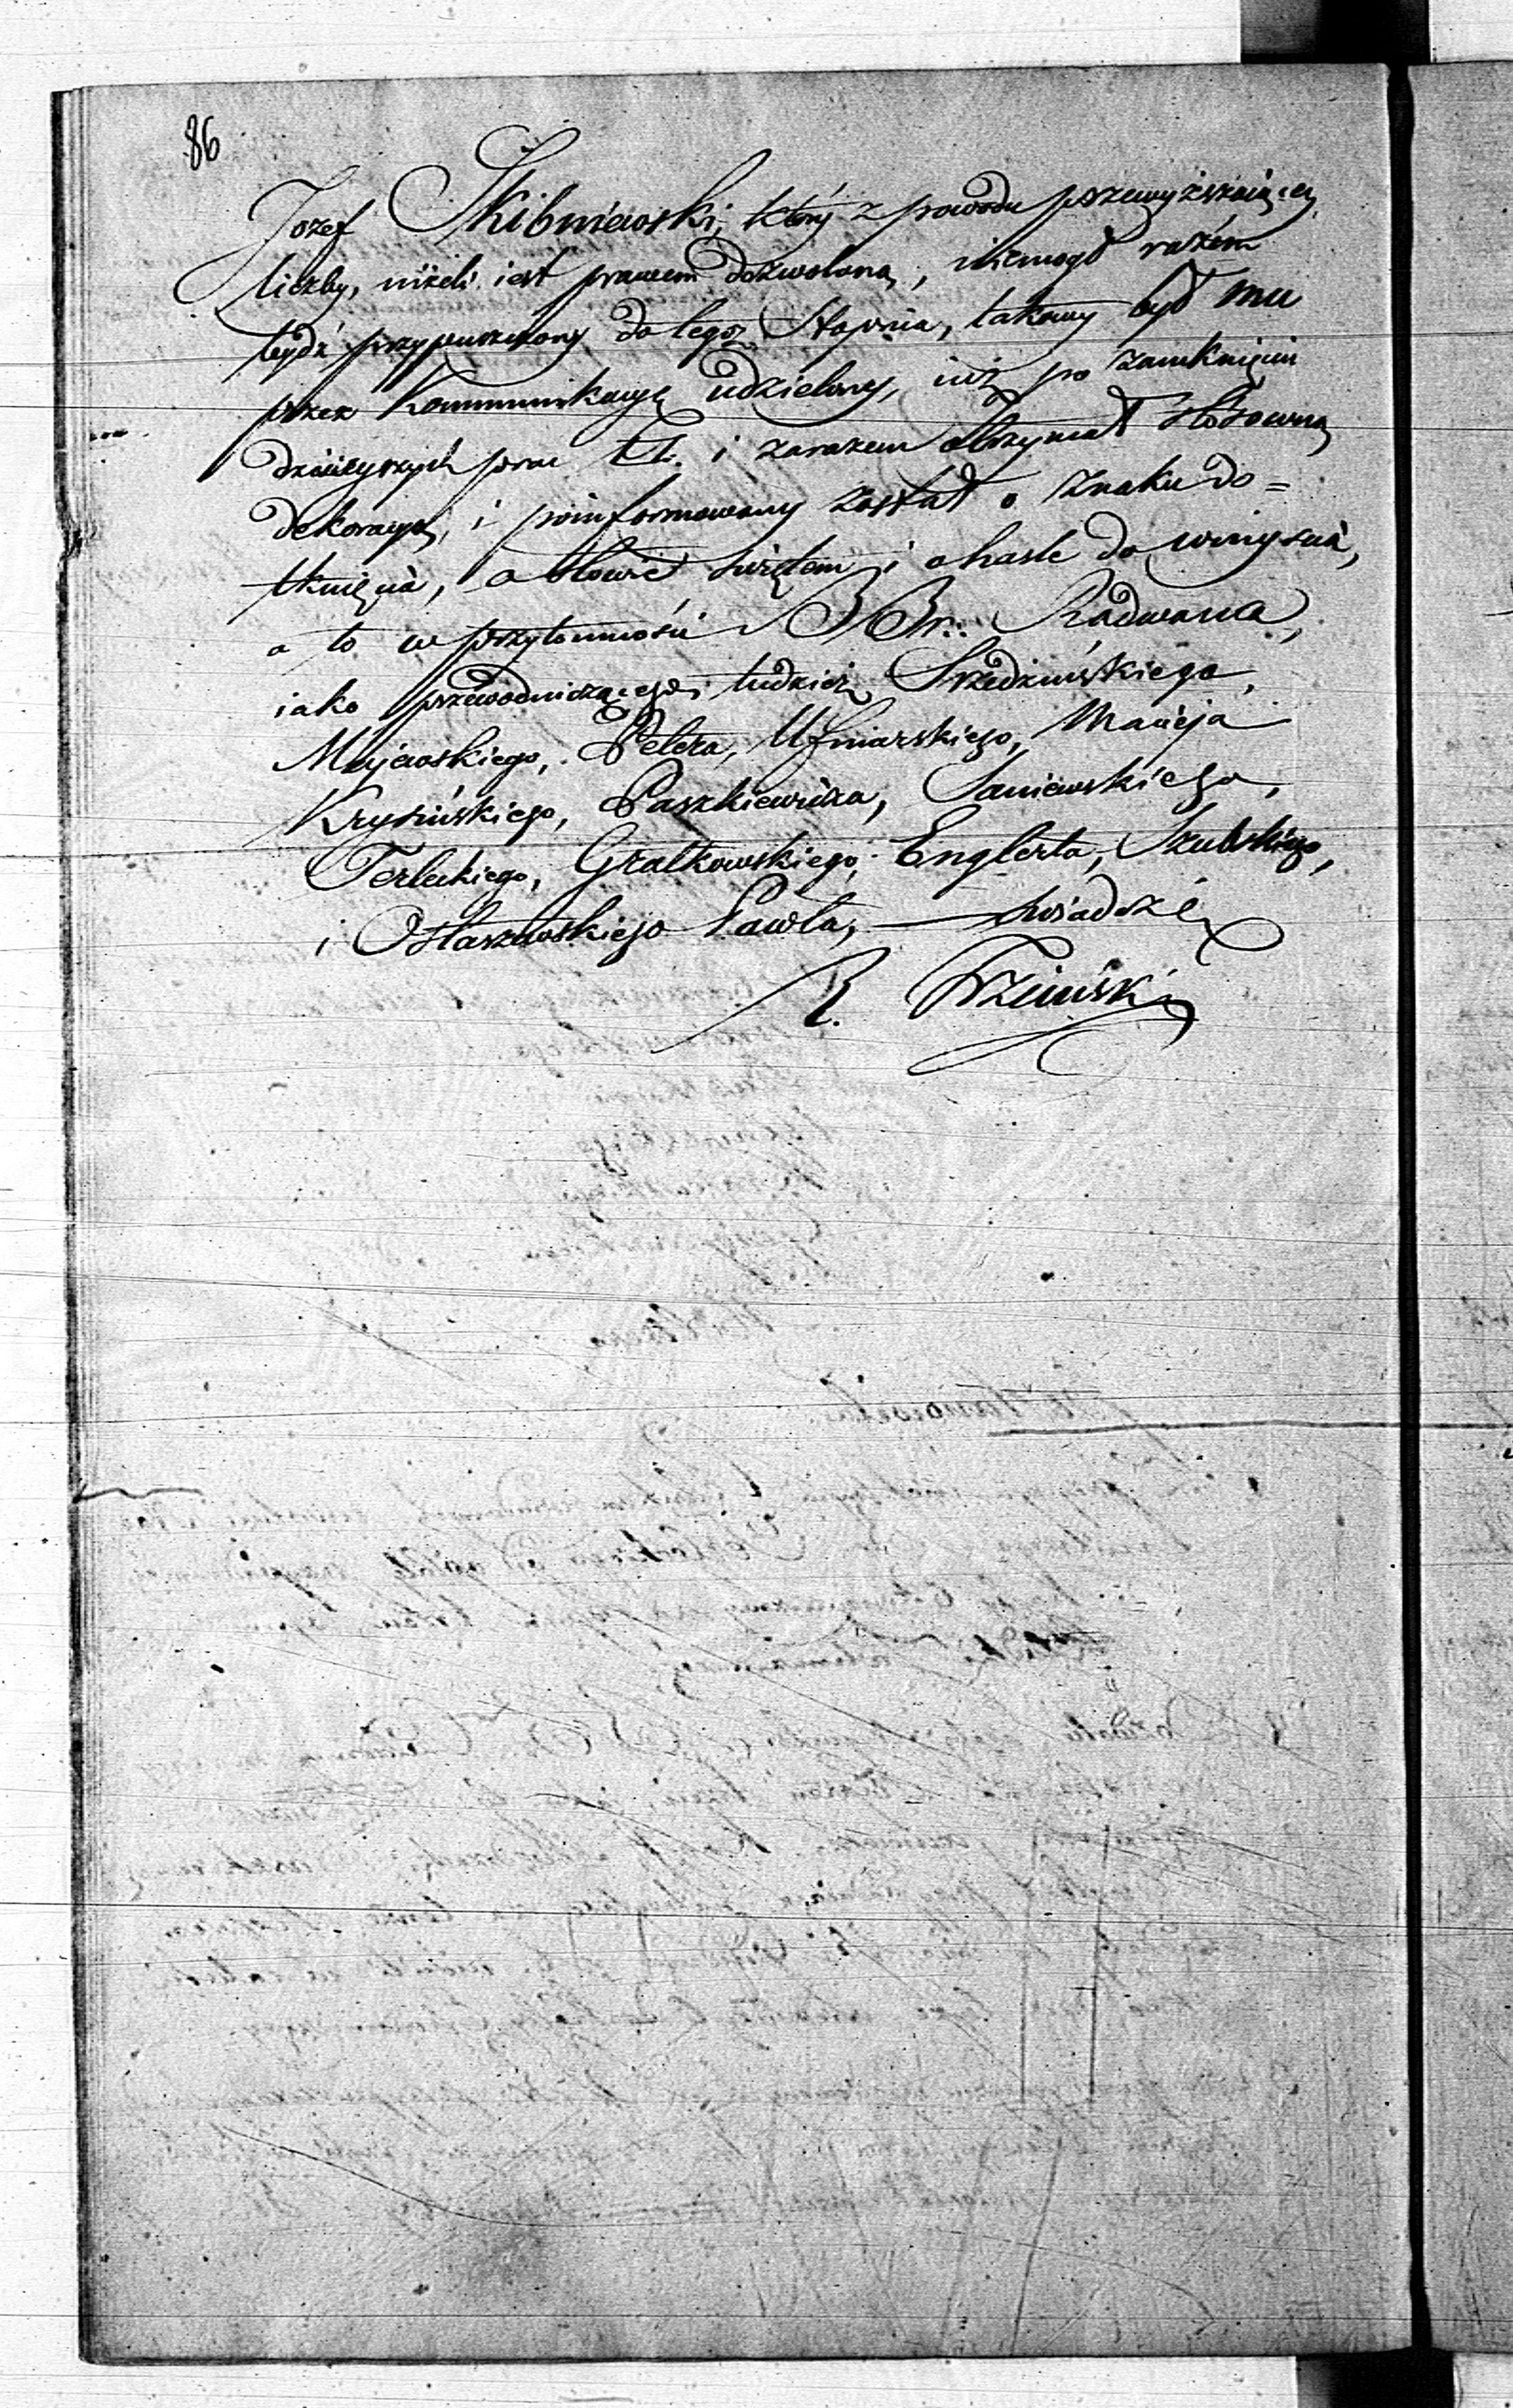 86
Jozef Skibniewski, który z powodu przewyższaiącey
liczby, niżeli iest prawem dozwolona, niemogł razem
bydź przypuszczony do tego Stopnia, takowy był mu
przez Kommunikacyę udzielony, iuż po zamknięciu
dzisieyszych prac i zarazem otrzymał stosowną
dekoracyą, i poinformowany został o znaku do=
tknięcia, o słowie świętem i o haśle do wniyscia,
a to w przytomności BBr:. Radwana,
iako przewodniczącego, tudzież Srzedzińskiego,
Majewskiego, Petera, Ufniarskiego, Macieja
Krysińskiego, Paszkiewicza, Janiewskiego,
Terleckiego, Gratkowskiego, Englerta, Szulskiego,
i Ostaszewskiego Pawła, — świadczę
R.